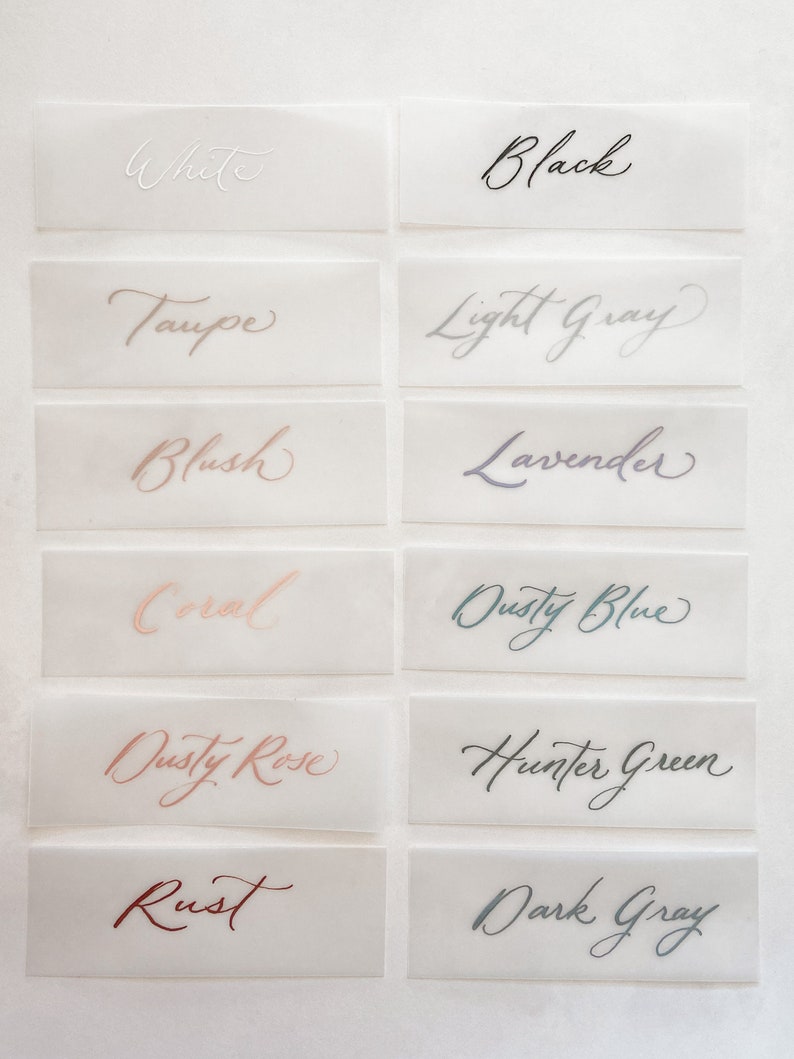 White
Black
Taupe
Light Gray
Blush
Lavender
Coral
Dusty Blue
Dusty Rose
Hunter Green
Rust
Dark Gray